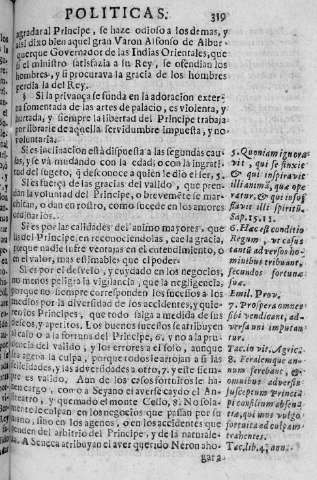 POLITICAS. 319
agradar al Principe, se haze odioso a los demas, y
assi dixo bien aquel gran Varon Alfonso de Albur-
querque Governador de las Indias Orientales, que
si el ministro satisfazia a su Rey, se ofendian los
hombres, y si procurava la gracia de los hombres
perdia la del Rey.
§ Si la privança se funda en la adoracion exter-
na fomentada de las artes de palacio, es violenta, y
hurtada, y siempre la libertad del Principe trabaja
por librarse de aquella servidumbre impuesta, y no
voluntaria.
Si es inclinacion està dispuesta a las segundas cau-
sas, y se và mudando con la edad, o con la ingrati-
tud del sugeto, que desconoce a quien le dio el ser. 5.
Si es fuerça de las gracias del valido, que pren-
dan la voluntad del Principe, o brevemente se mar-
chitan, o dan en rostro, como sucede en los amores
ordinarios.
Si es por las calidades del animo mayores, que
las del Principe, en reconociendolas, cae la gracia,
porque nadie sufre ventajas en el entendimiento, o
en el valor, mas estimables que el poder.
Si es por el desvelo, y cuydado en los negocios,
no menos peligra la vigilancia, que la negligencia,
porque no siempre corresponden los sucessos a los
medios por la diversidad de los accidentes, y quie-
ren los Principes, que todo salga a medida de sus
deseos, y apetitos. Los buenos sucessos se atribuyen
al caso o a la fortuna del Principe, 6. y no a la pru-
dencia del valido, y los errores a el solo, aunque
sea agena la culpa, porque todos le arrojan a si las
felicidades, y las adversidades a otro, 7. y este siem-
pre es valido. Aun de los casos fortuitos le ha-
zen cargo, como a Seyano el averse caydo el An-
fiteatro, y quemado el monte Celio, 8. No sola-
mente le culpan en los negocios que passan por su
mano, sino en los agenos, o en los accidentes que
penden del arbitrio del Principe, y de la naturale-
za. A Seneca atribuyan el aver querido Neron aho-
gar a
5. Quoniam ignora-
vit, qui se finxit
& qui inspiravit
illi animam, quæ ope-
ratur, & qui insuf-
flavit illi spiritũ.
Sap. 15. 11.
6. Hæc est conditio
Regum, ut casus
tantũ adversos ho-
minibus tribuant,
secundos fortunæ
suæ.
Emil. Prov.
7. Prospera omnes
sibi vendicant, ad-
versa uni imputan
tur.
Tacin vit. Agric.
8. Feralemque an-
num ferebant, &
ominibus adversis
susceptum Principi
consilium absenti-
æ, qui mos vulgo,
fortuita ad culpam
trahentes.
Tac. lib. 4. ann.